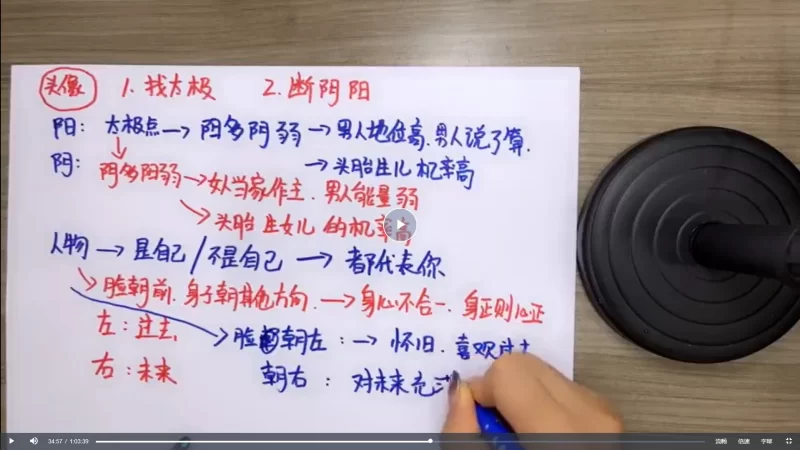 头像 1.找太极 2.断阴阳
阳: 太极点→阳多阴弱→男人地位高.男人说了算.
→头胎生儿机率高
阴: 阴多阳弱→女人当家作主.男人能量弱
→头胎生女儿的机率高
人物→是自己/不是自己→都代表你
脸朝前.身子朝其他方向.→身心不合一.身正则心正
左:过去
→脸朝左:→怀旧.喜欢过去
右:未来
朝右:对未来充
34:57 / 1:03:39
流畅 倍速 字幕